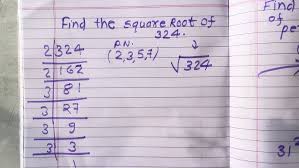 Find the square Root of
324.
P.N.
(2,3,5,7)
↓
√324
2 324
2 162
3 81
3 27
3 9
3 3
1
Find
of
pe
31²